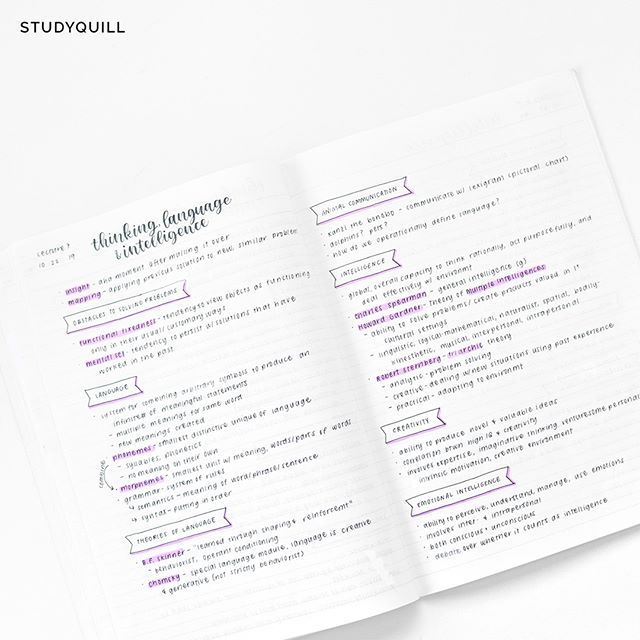 STUDYQUILL
LECTURE 7
10 22 19
thinking, language
& intelligence
insight - aha moment after mulling it over
mapping - applying previous solution to new, similar problem
OBSTACLES TO SOLVING PROBLEMS
functional fixedness - tendency to view objects as functioning
only in their usual/customary ways
mental set - tendency to persist w/ solutions that have
worked in the past
LANGUAGE
system for combining arbitrary symbols to produce an
infinite # of meaningful statements
- multiple meanings for same word
- new meanings created
phonemes - smallest distinctive unique of language
- syllables, phonetics
- no meaning on their own
combine
morphemes - smallest unit w/ meaning, words/parts of words
grammar - system of rules
↳ semantics - meaning of word/phrase/sentence
↳ syntax - putting in order
THEORIES OF LANGUAGE
B.F. skinner - "learned through shaping & reinforcemt"
- behaviorist, operant conditioning
chomsky - special language module, language is creative
& generative (not strictly behaviorist)
ANIMAL COMMUNICATION
kanzi the bonobo - communicate w/ lexigram (pictorial chart)
dolphins? pets?
how do we operationally define language?
INTELLIGENCE
global, overall capacity to think rationally, act purposefully, and
deal effectively w/ environmt
charles spearman - general intelligence (g)
Howard Gardner - theory of Multiple Intelligences
- ability to solve problems/create products valued in it
cultural settings
- linguistic, logical-mathematical, naturalist, spatial, bodily-
kinesthetic, musical, interpersonal, intrapersonal
Robert sternberg - triarchic theory
- analytic - problem solving
- creative - dealing w/new situations using past experience
- practical - adapting to environmt
CREATIVITY
ability to produce novel & valuable ideas
correlation btwn high IQ & creativity
involves expertise, imaginative thinking, venturesome personal
intrinsic motivation, creative environment
EMOTIONAL INTELLIGENCE
ability to perceive, understand, manage, use emotions
involves inter- & intrapersonal
both conscious & unconscious
debate over whether it counts as intelligence